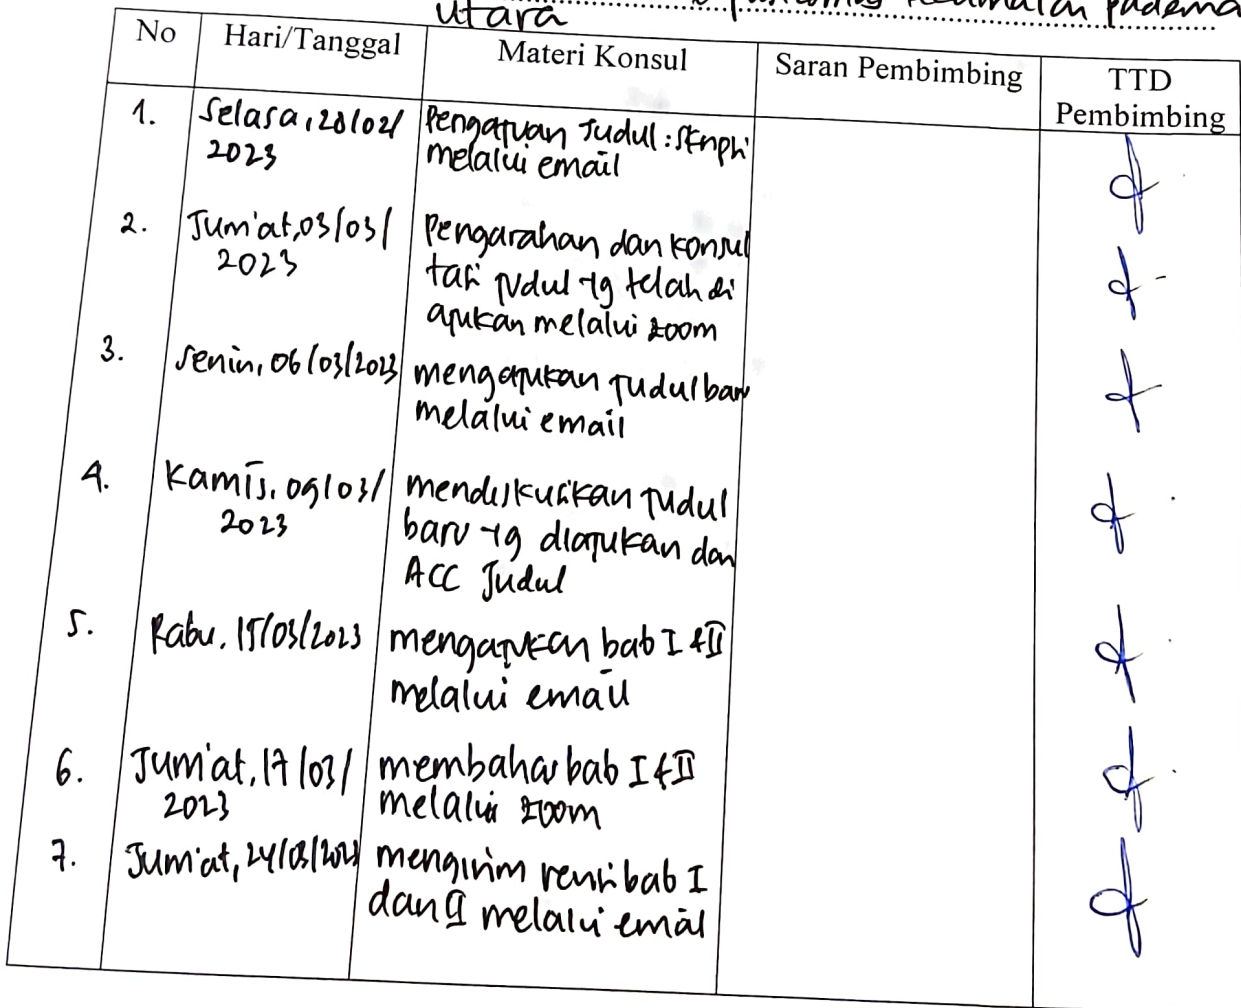 Kecamatan Padema
utara
No Hari/Tanggal Materi Konsul Saran Pembimbing TTD Pembimbing
1. Selasa, 28/02/ Pengajuan Judul: Skripsi
2023 melalui email
2. Jum'at, 03/03/ Pengarahan dan konsul
2023 tasi judul yg telah di
ajukan melalui zoom
3. Senin, 06/03/2023 mengajukan judul baru
melalui email
4. Kamis, 09/03/ mendiskusikan judul
2023 baru yg diajukan dan
ACC Judul
5. Rabu, 15/03/2023 mengajukan bab I & II
melalui email
6. Jum'at, 17/03/ membahas bab I & II
2023 melalui zoom
7. Jum'at, 24/03/2023 mengirim revisi bab I
dan II melalui email